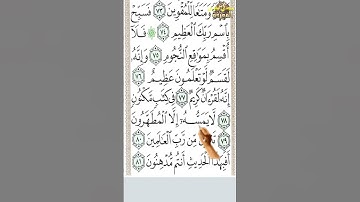 وَمَتَٰعًا لِّلْمُقْوِينَ ٧٣ فَسَبِّحْ
بِاسْمِ رَبِّكَ الْعَظِيمِ ٧٤ فَلَآ
أُقْسِمُ بِمَوَٰقِعِ النُّجُومِ ٧٥ وَإِنَّهُ
لَقَسَمٌ لَّوْ تَعْلَمُونَ عَظِيمٌ ٧٦
إِنَّهُ لَقُرْءَانٌ كَرِيمٌ ٧٧ فِي كِتَٰبٍ مَّكْنُونٍ
٧٨ لَّا يَمَسُّهُ إِلَّا الْمُطَهَّرُونَ
٧٩ تَنزِيلٌ مِّن رَّبِّ الْعَالَمِينَ ٨٠
أَفَبِهَٰذَا الْحَدِيثِ أَنتُم مُّدْهِنُونَ ٨١